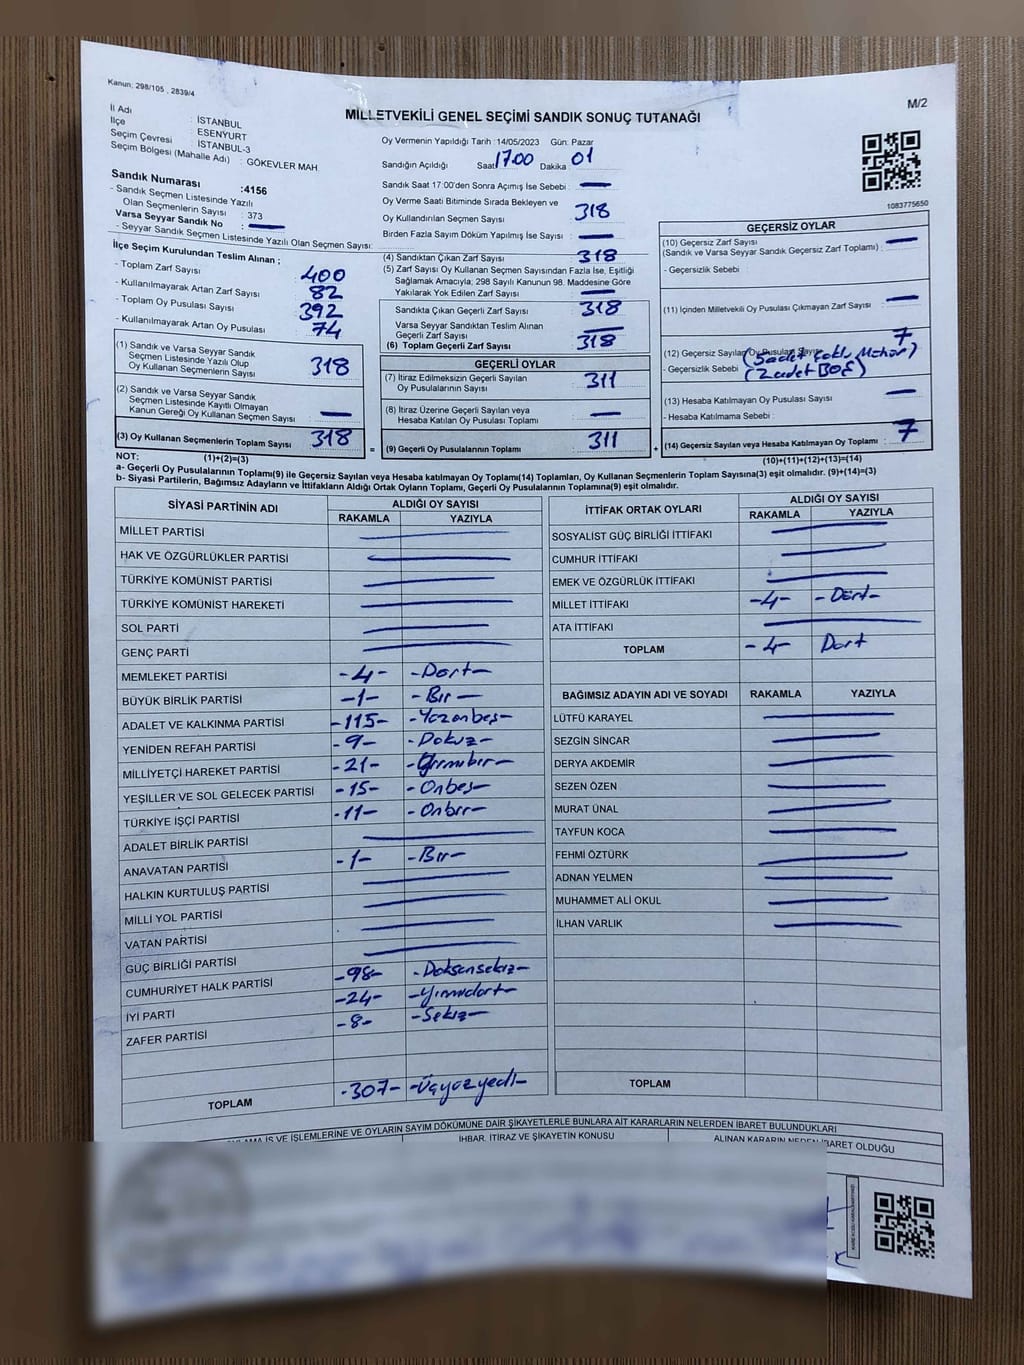 Kanun: 298/105 , 2839/4
M/2
MİLLETVEKİLİ GENEL SEÇİMİ SANDIK SONUÇ TUTANAĞI
İl Adı : İSTANBUL
İlçe : ESENYURT
Seçim Çevresi : İSTANBUL-3
Seçim Bölgesi (Mahalle Adı) : GÖKEVLER MAH
Sandık Numarası :4156
- Sandık Seçmen Listesinde Yazılı
Olan Seçmenlerin Sayısı : 373
Varsa Seyyar Sandık No :
- Seyyar Sandık Seçmen Listesinde Yazılı Olan Seçmen Sayısı:
İlçe Seçim Kurulundan Teslim Alınan ;
- Toplam Zarf Sayısı 400
- Kullanılmayarak Artan Zarf Sayısı 82
- Toplam Oy Pusulası Sayısı 392
- Kullanılmayarak Artan Oy Pusulası 74
(1) Sandık ve Varsa Seyyar Sandık
Seçmen Listesinde Yazılı Olup
Oy Kullanan Seçmenlerin Sayısı 318
(2) Sandık ve Varsa Seyyar Sandık
Seçmen Listesinde Kayıtlı Olmayan
Kanun Gereği Oy Kullanan Seçmen Sayısı
(3) Oy Kullanan Seçmenlerin Toplam Sayısı 318
Oy Vermenin Yapıldığı Tarih :14/05/2023 Gün: Pazar
Sandığın Açıldığı Saat 17.00 Dakika 01
Sandık Saat 17:00'den Sonra Açımış İse Sebebi :
Oy Verme Saati Bitiminde Sırada Bekleyen ve
Oy Kullandırılan Seçmen Sayısı 318
Birden Fazla Sayım Döküm Yapılmış İse Sayısı :
(4) Sandıktan Çıkan Zarf Sayısı 318
(5) Zarf Sayısı Oy Kullanan Seçmen Sayısından Fazla İse, Eşitliği
Sağlamak Amacıyla; 298 Sayılı Kanunun 98. Maddesine Göre
Yakılarak Yok Edilen Zarf Sayısı
Sandıkta Çıkan Geçerli Zarf Sayısı 318
Varsa Seyyar Sandıktan Teslim Alınan
Geçerli Zarf Sayısı
(6) Toplam Geçerli Zarf Sayısı 318
GEÇERLİ OYLAR
(7) İtiraz Edilmeksizin Geçerli Sayılan
Oy Pusulalarının Sayısı 311
(8) İtiraz Üzerine Geçerli Sayılan veya
Hesaba Katılan Oy Pusulası Toplamı
= (9) Geçerli Oy Pusulalarının Toplamı 311
1083775650
GEÇERSİZ OYLAR
(10) Geçersiz Zarf Sayısı
(Sandık ve Varsa Seyyar Sandık Geçersiz Zarf Toplamı) :
- Geçersizlik Sebebi
(11) İçinden Milletvekili Oy Pusulası Çıkmayan Zarf Sayısı :
(12) Geçersiz Sayılan Oy Pusulası Sayısı 7
- Geçersizlik Sebebi (5 adet Çoklu Mühür)
(2 adet BOŞ)
(13) Hesaba Katılmayan Oy Pusulası Sayısı
- Hesaba Katılmama Sebebi :
+ (14) Geçersiz Sayılan veya Hesaba Katılmayan Oy Toplamı : 7
NOT: (1)+(2)=(3) (10)+(11)+(12)+(13)=(14)
a- Geçerli Oy Pusulalarının Toplamı(9) ile Geçersiz Sayılan veya Hesaba katılmayan Oy Toplamı(14) Toplamları, Oy Kullanan Seçmenlerin Toplam Sayısına(3) eşit olmalıdır. (9)+(14)=(3)
b- Siyasi Partilerin, Bağımsız Adayların ve İttifakların Aldığı Ortak Oyların Toplamı, Geçerli Oy Pusulalarının Toplamına(9) eşit olmalıdır.
SİYASİ PARTİNİN ADI ALDIĞI OY SAYISI
RAKAMLA YAZIYLA
MİLLET PARTİSİ
HAK VE ÖZGÜRLÜKLER PARTİSİ
TÜRKİYE KOMÜNİST PARTİSİ
TÜRKİYE KOMÜNİST HAREKETİ
SOL PARTİ
GENÇ PARTİ
MEMLEKET PARTİSİ -4- -Dort-
BÜYÜK BİRLİK PARTİSİ -1- -Bir-
ADALET VE KALKINMA PARTİSİ -115- -Yüzonbeş-
YENİDEN REFAH PARTİSİ -9- -Dokuz-
MİLLİYETÇİ HAREKET PARTİSİ -21- -Yirmibir-
YEŞİLLER VE SOL GELECEK PARTİSİ -15- -Onbeş-
TÜRKİYE İŞÇİ PARTİSİ -11- -Onbir-
ADALET BİRLİK PARTİSİ
ANAVATAN PARTİSİ -1- -Bir-
HALKIN KURTULUŞ PARTİSİ
MİLLİ YOL PARTİSİ
VATAN PARTİSİ
GÜÇ BİRLİĞİ PARTİSİ
CUMHURİYET HALK PARTİSİ -98- -Doksansekiz-
İYİ PARTİ -24- -Yirmidört-
ZAFER PARTİSİ -8- -Sekiz-
TOPLAM -307- -Üçyüzyedi-
İTTİFAK ORTAK OYLARI ALDIĞI OY SAYISI
RAKAMLA YAZIYLA
SOSYALİST GÜÇ BİRLİĞİ İTTİFAKI
CUMHUR İTTİFAKI
EMEK VE ÖZGÜRLÜK İTTİFAKI
MİLLET İTTİFAKI -4- -Dört-
ATA İTTİFAKI
TOPLAM -4- Dort
BAĞIMSIZ ADAYIN ADI VE SOYADI RAKAMLA YAZIYLA
LÜTFÜ KARAYEL
SEZGİN SİNCAR
DERYA AKDEMİR
SEZEN ÖZEN
MURAT ÜNAL
TAYFUN KOCA
FEHMİ ÖZTÜRK
ADNAN YELMEN
MUHAMMET ALİ OKUL
İLHAN VARLIK
TOPLAM
İŞ VE İŞLEMLERİNE VE OYLARIN SAYIM DÖKÜMÜNE DAİR ŞİKAYETLERLE BUNLARA AİT KARARLARIN NELERDEN İBARET BULUNDUKLARI
İHBAR, İTİRAZ VE ŞİKAYETİN KONUSU ALINAN KARARIN NEDEN İBARET OLDUĞU